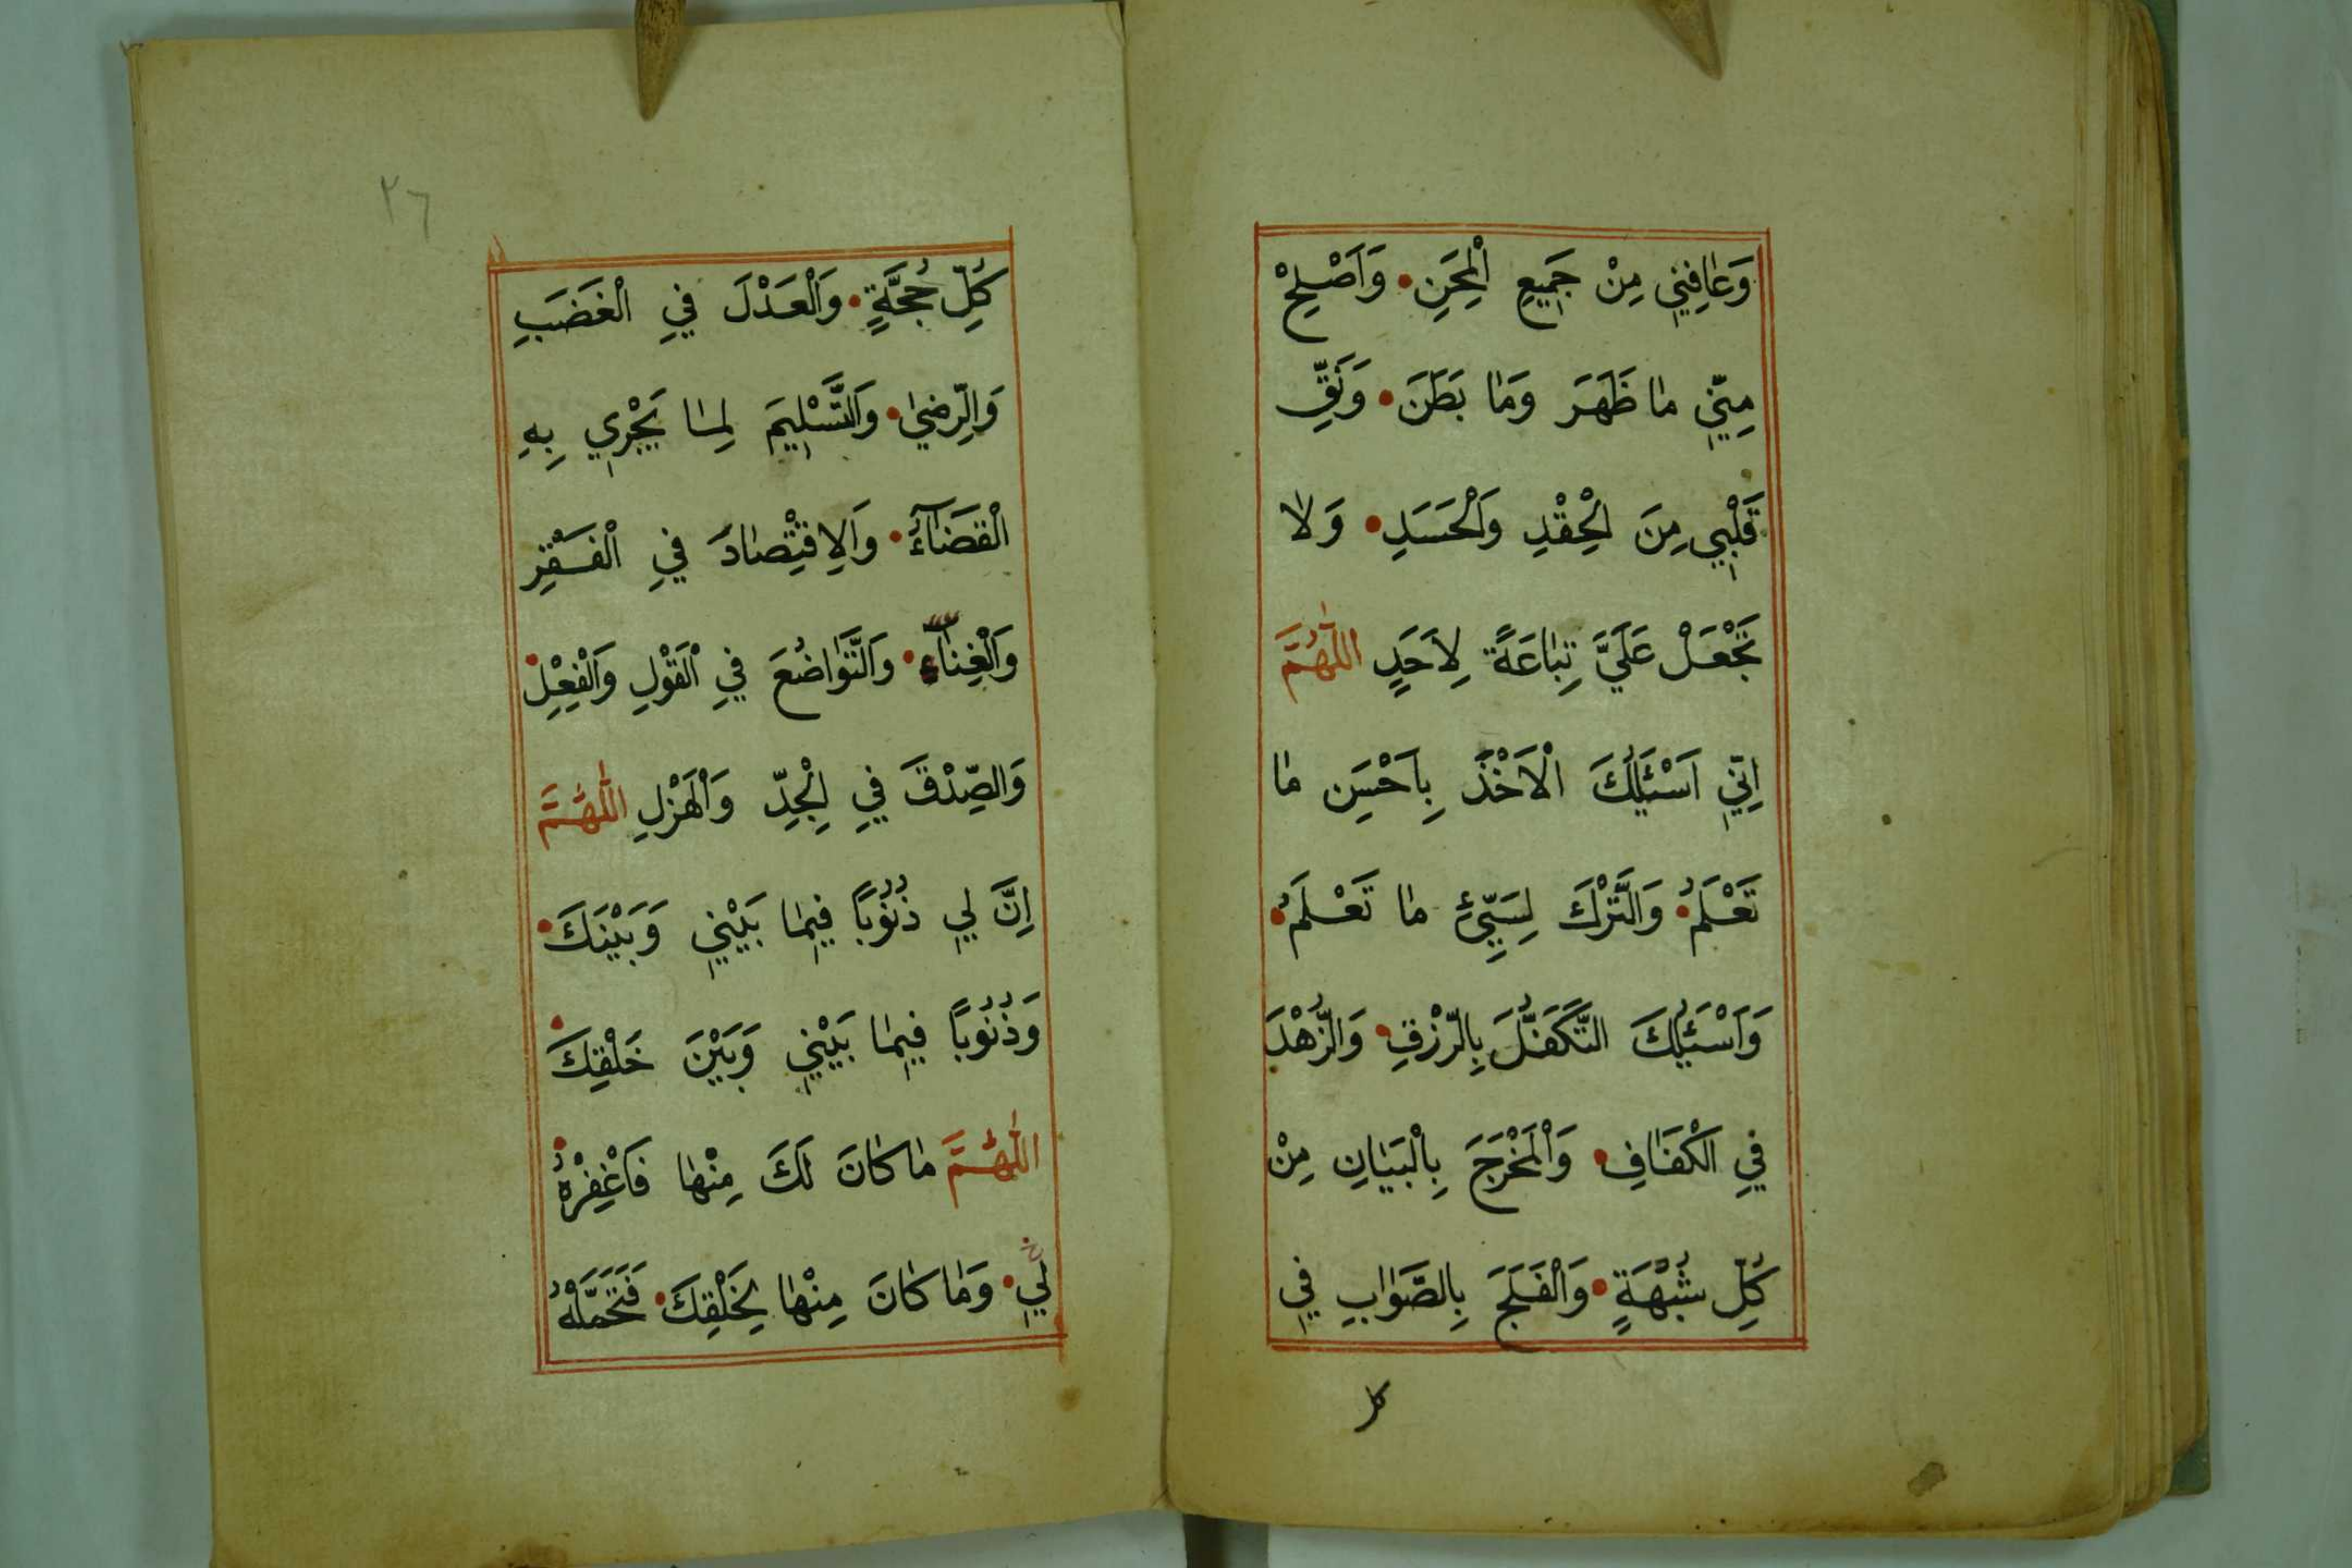 وَعَافِنِي مِنْ جَمِيعِ الْمِحَنِ • وَاَصْلِحْ
مِنِّي مَا ظَهَرَ وَمَا بَطَنَ • وَنَقِّ
قَلْبِي مِنَ الْحِقْدِ وَالْحَسَدِ • وَلَا
تَجْعَلْ عَلَيَّ تِبَاعَةً لِاَحَدٍ اَللّٰهُمَّ
اِنِّي اَسْئَلُكَ الْاَخْذَ بِاَحْسَنِ مَا
تَعْلَمُ • وَالتَّرْكَ لِسَيِّئِ مَا تَعْلَمُ •
وَاَسْئَلُكَ التَّكَفُّلَ بِالرِّزْقِ • وَالزُّهْدَ
فِي الْكَفَافِ • وَالْمَخْرَجَ بِالْبَيَانِ مِنْ
كُلِّ شُبْهَةٍ • وَالْفَلَجَ بِالصَّوَابِ فِي
كل
٢٦
كُلِّ حُجَّةٍ • وَالْعَدْلَ فِي الْغَضَبِ
وَالرِّضَى • وَالتَّسْلِيمَ لِمَا يَجْرِي بِهِ
الْقَضَآءُ • وَالِاقْتِصَادَ فِي الْفَقْرِ
وَالْغِنَآءِ • وَالتَّوَاضُعَ فِي الْقَوْلِ وَالْفِعْلِ •
وَالصِّدْقَ فِي الْجِدِّ وَالْهَزْلِ اَللّٰهُمَّ
اِنَّ لِي ذُنُوبًا فِيمَا بَيْنِي وَبَيْنَكَ •
وَذُنُوبًا فِيمَا بَيْنِي وَبَيْنَ خَلْقِكَ •
اَللّٰهُمَّ مَا كَانَ لَكَ مِنْهَا فَاغْفِرْهُ •
لِي • وَمَا كَانَ مِنْهَا لِخَلْقِكَ • فَتَحَمَّلْهُ